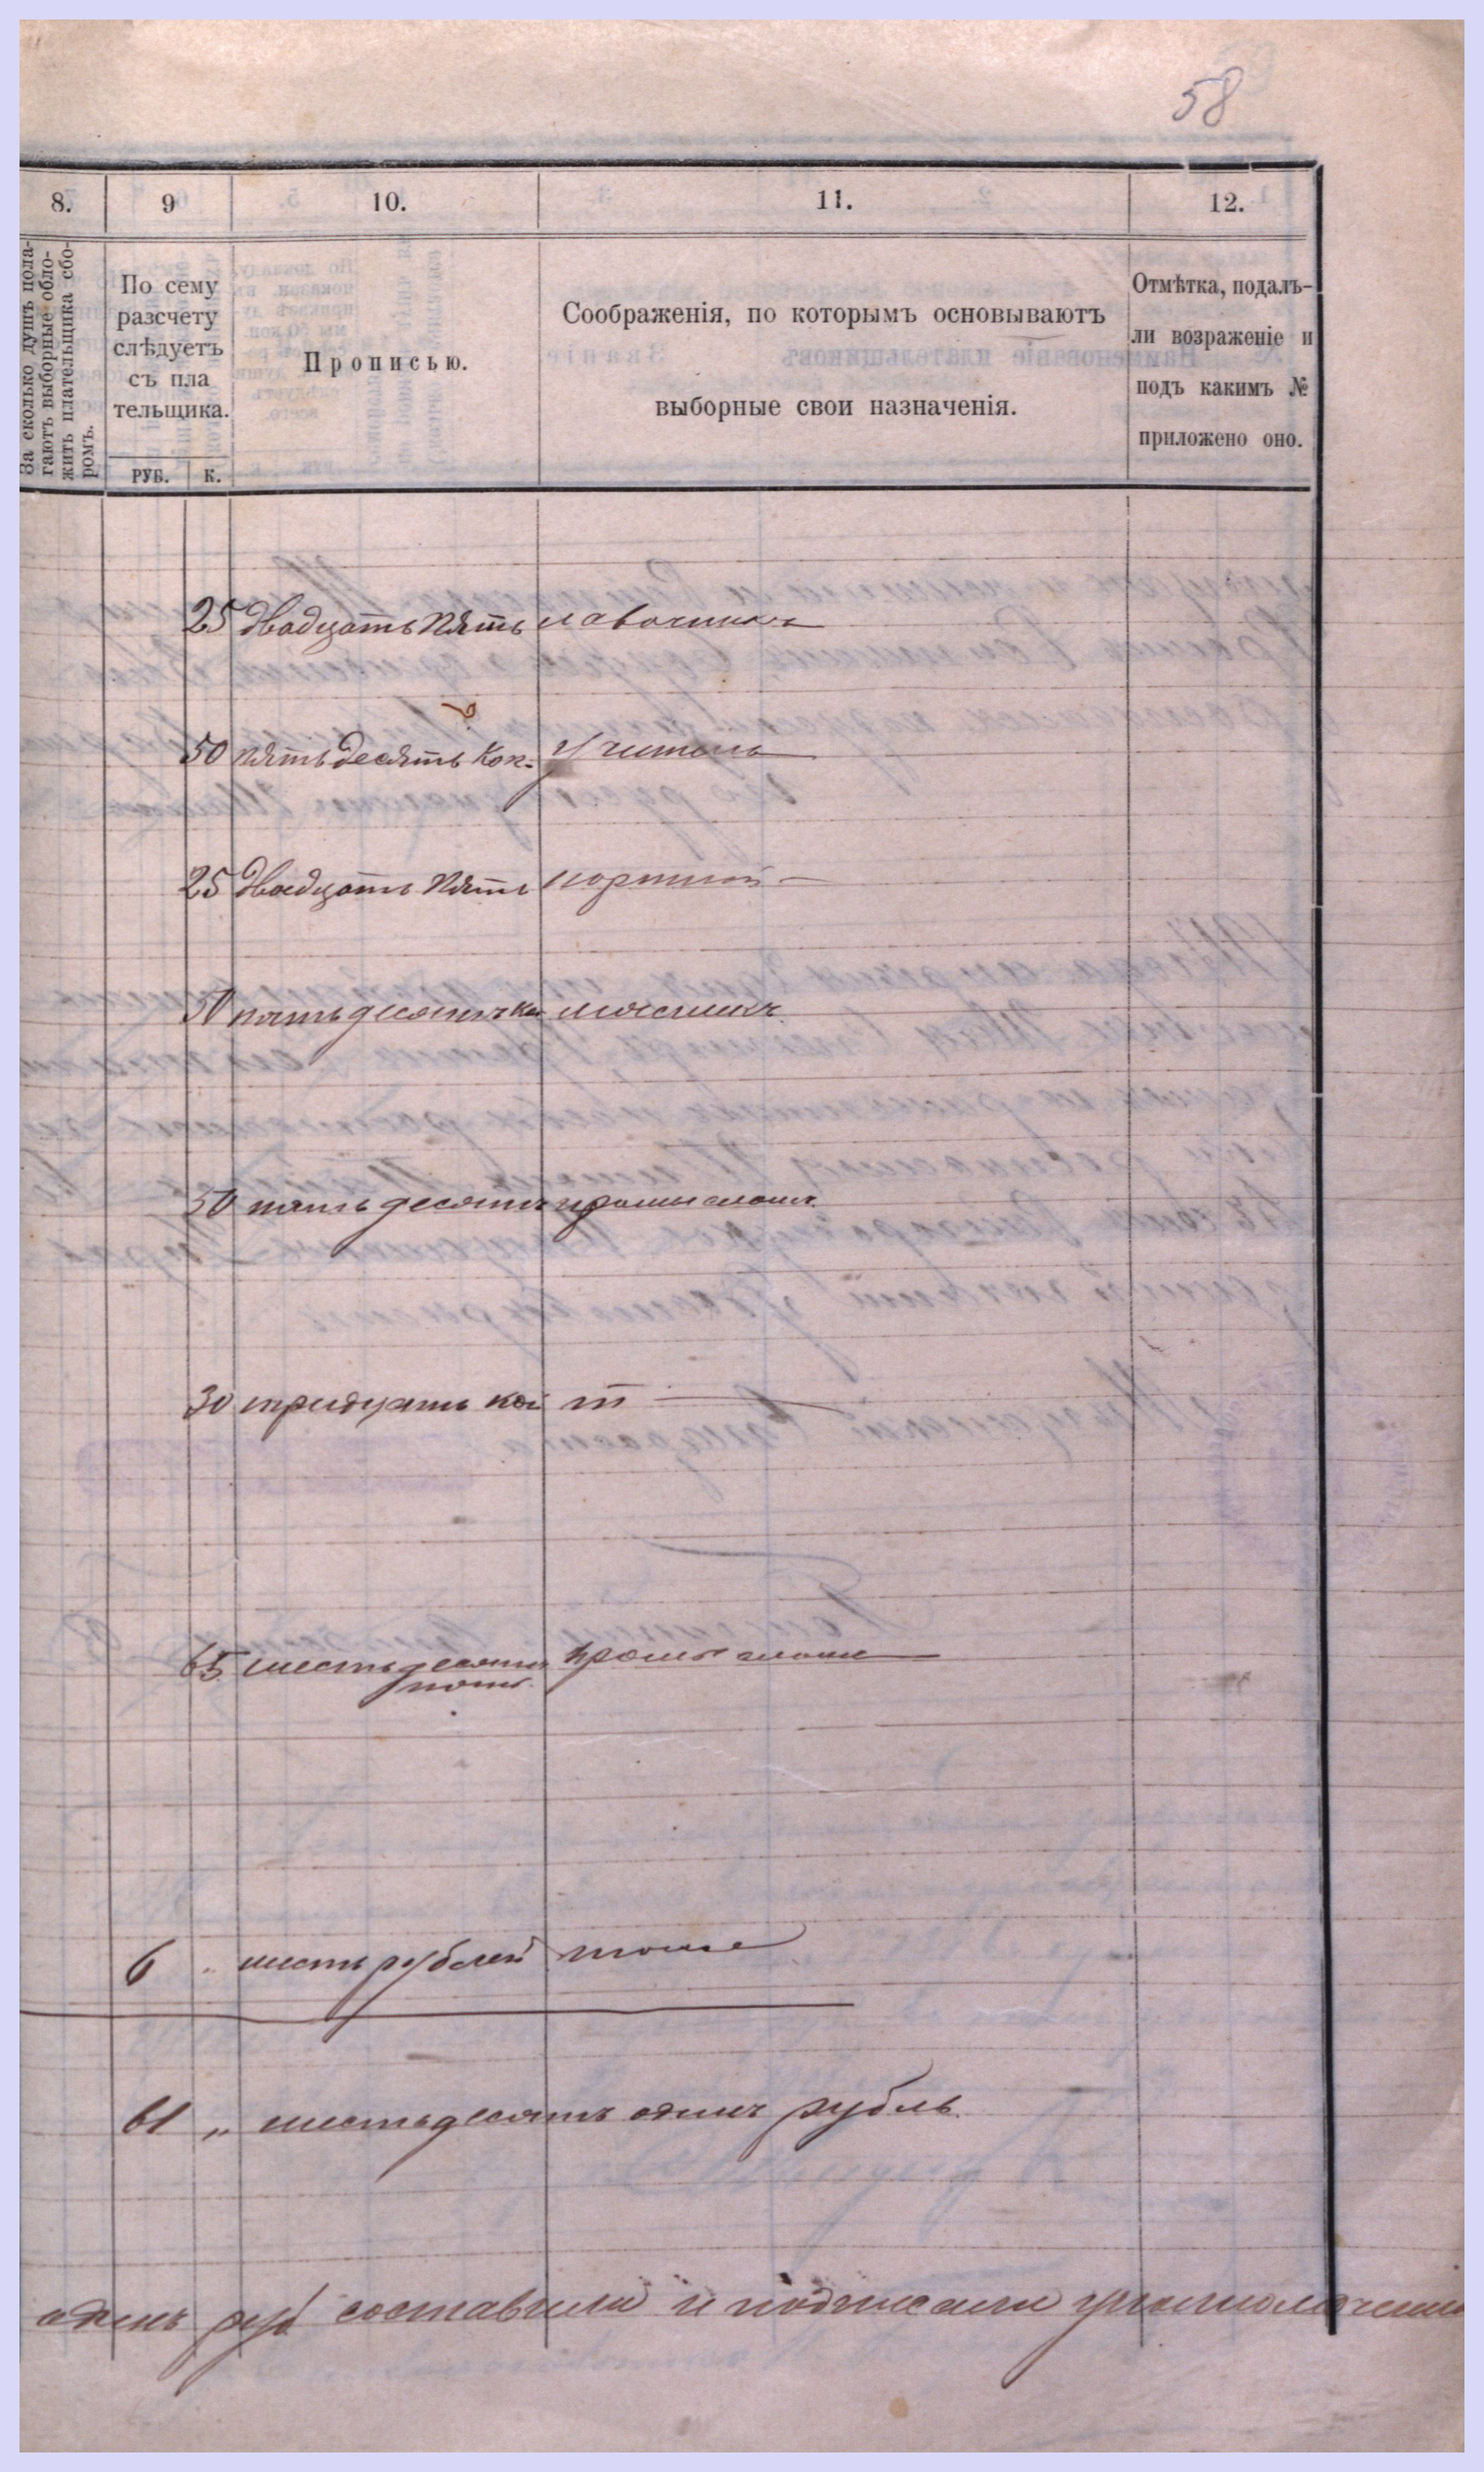 58
8. 9 10. 11. 12.
За сколько душъ пола-
гаютъ выборные обло-
жить плательщика сбо-
ромъ.
По сему
разсчету
слѣдуетъ
съ пла
тельщика.
РУБ. К.
Прописью.
Соображенія, по которымъ основываютъ
выборные свои назначенія.
Отмѣтка, подалъ-
ли возраженіе и
подъ какимъ №
приложено оно.
25 двадцать пять лавочникъ
50 пятьдесять коп. учитель
25 двадцать пять портной
50 пятьдесятъ ко мясникъ
50 пятьдесятъ
30 тридцать коп т
65 шестьдесятъ
пять
6 " шесть рублей тоже
61 " шестьдесятъ одинъ рубль.
одинъ руб составили и подписали